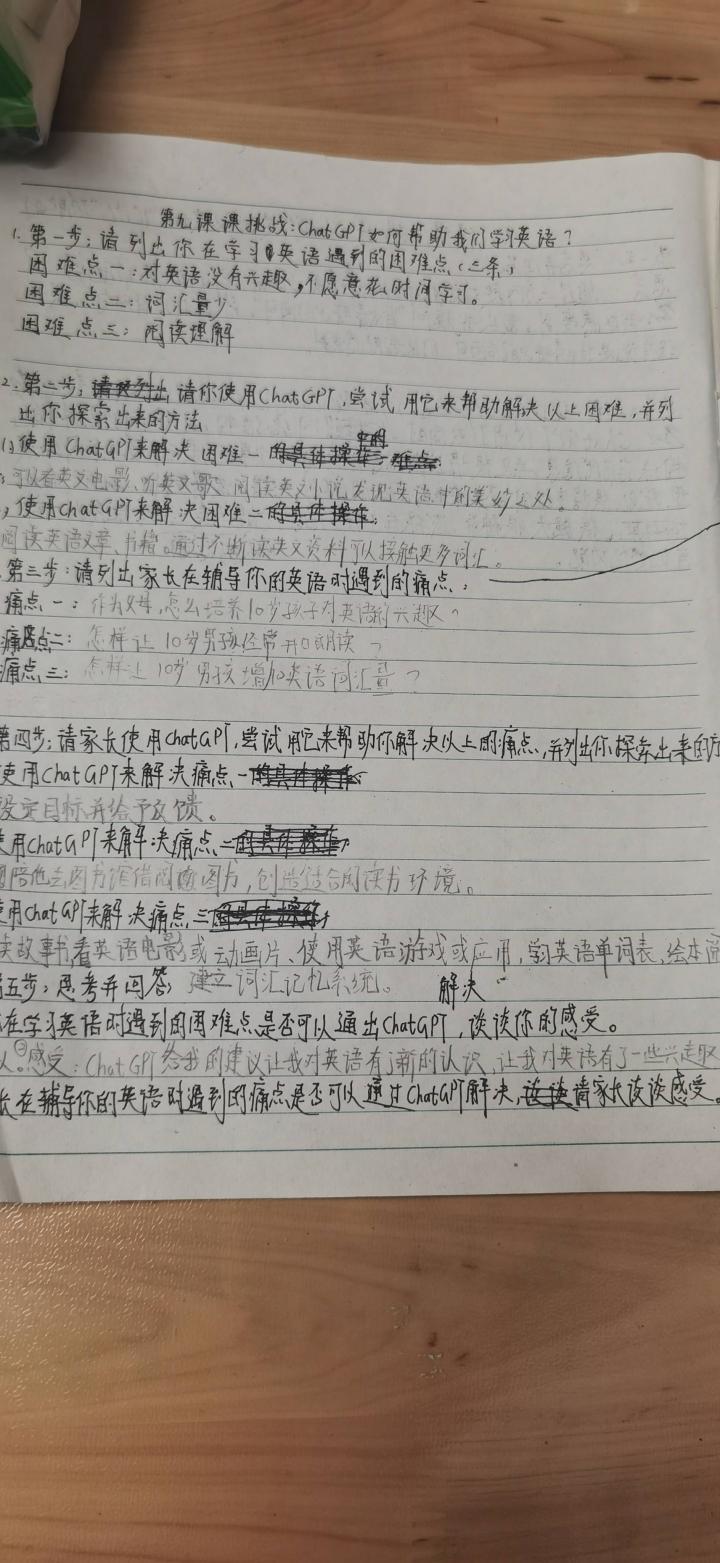 第九课课挑战:ChatGPT如何帮助我们学习英语?
1.第一步:请列出你在学习英语遇到的困难点(三条)
困难点一:对英语没有兴趣,不愿意花时间学习。
困难点二:词汇量少
困难点三:阅读理解
2.第二步:请你使用ChatGPT,尝试用它来帮助解决以上困难,并列
出你探索出来的方法
使用ChatGPT来解决困难一
可以看英文电影、听英文歌、阅读英文小说发现英语中的美妙之处。
使用ChatGPT来解决困难二
阅读英语文章、书籍。通过不断读英文资料可以接触更多词汇。
第三步:请列出家长在辅导你的英语时遇到的痛点:
痛点一:作为父母,怎么培养10岁孩子对英语的兴趣?
痛点二:怎样让10岁男孩经常开口朗读?
痛点三:怎样让10岁男孩增加英语词汇量?
第四步:请家长使用ChatGPT,尝试用它来帮助你解决以上的痛点,并列出你探索出来的方
使用ChatGPT来解决痛点一
设定目标并给予反馈。
使用ChatGPT来解决痛点二
陪他去图书馆借阅图书,创造适合阅读书环境。
使用ChatGPT来解决痛点三
读故事书看英语电影或动画片、使用英语游戏或应用,学习英语单词表、绘本阅
第五步:思考并回答: 建立词汇记忆系统。 解决
在学习英语时遇到的困难点是否可以通出ChatGPT,谈谈你的感受。
感受:ChatGPT给我的建议让我对英语有了新的认识,让我对英语有了一些兴趣
长在辅导你的英语时遇到的痛点是否可以通过ChatGPT解决,请家长谈谈感受。